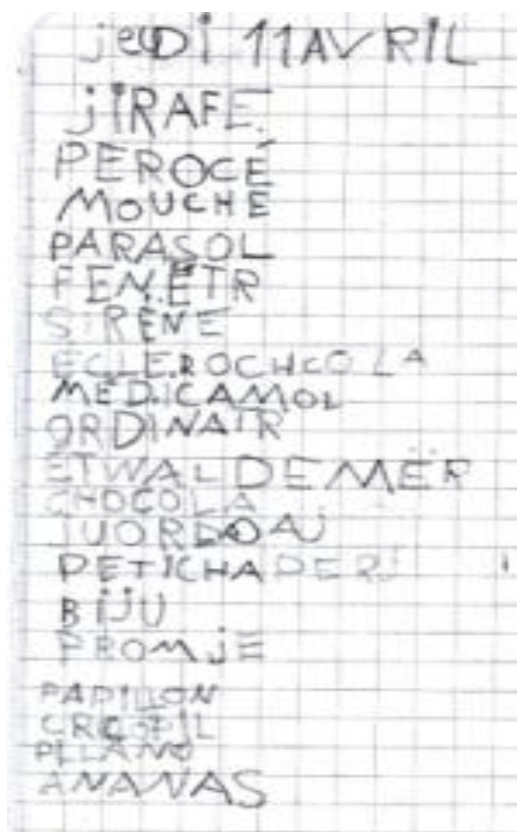 jeuDi 11 AVRIL
jIRAFE.
PEROCÉ
MOUCHE
PARASOL
FENËTR
SIRÈNE
ECLEROCHCOLA
MEDICAMOL
ORDINAIR
ETWAL DE MËR
CHOCOLA
PETICHAPERJ
BIJU
FROMjE
PAPILLON
ANANAS